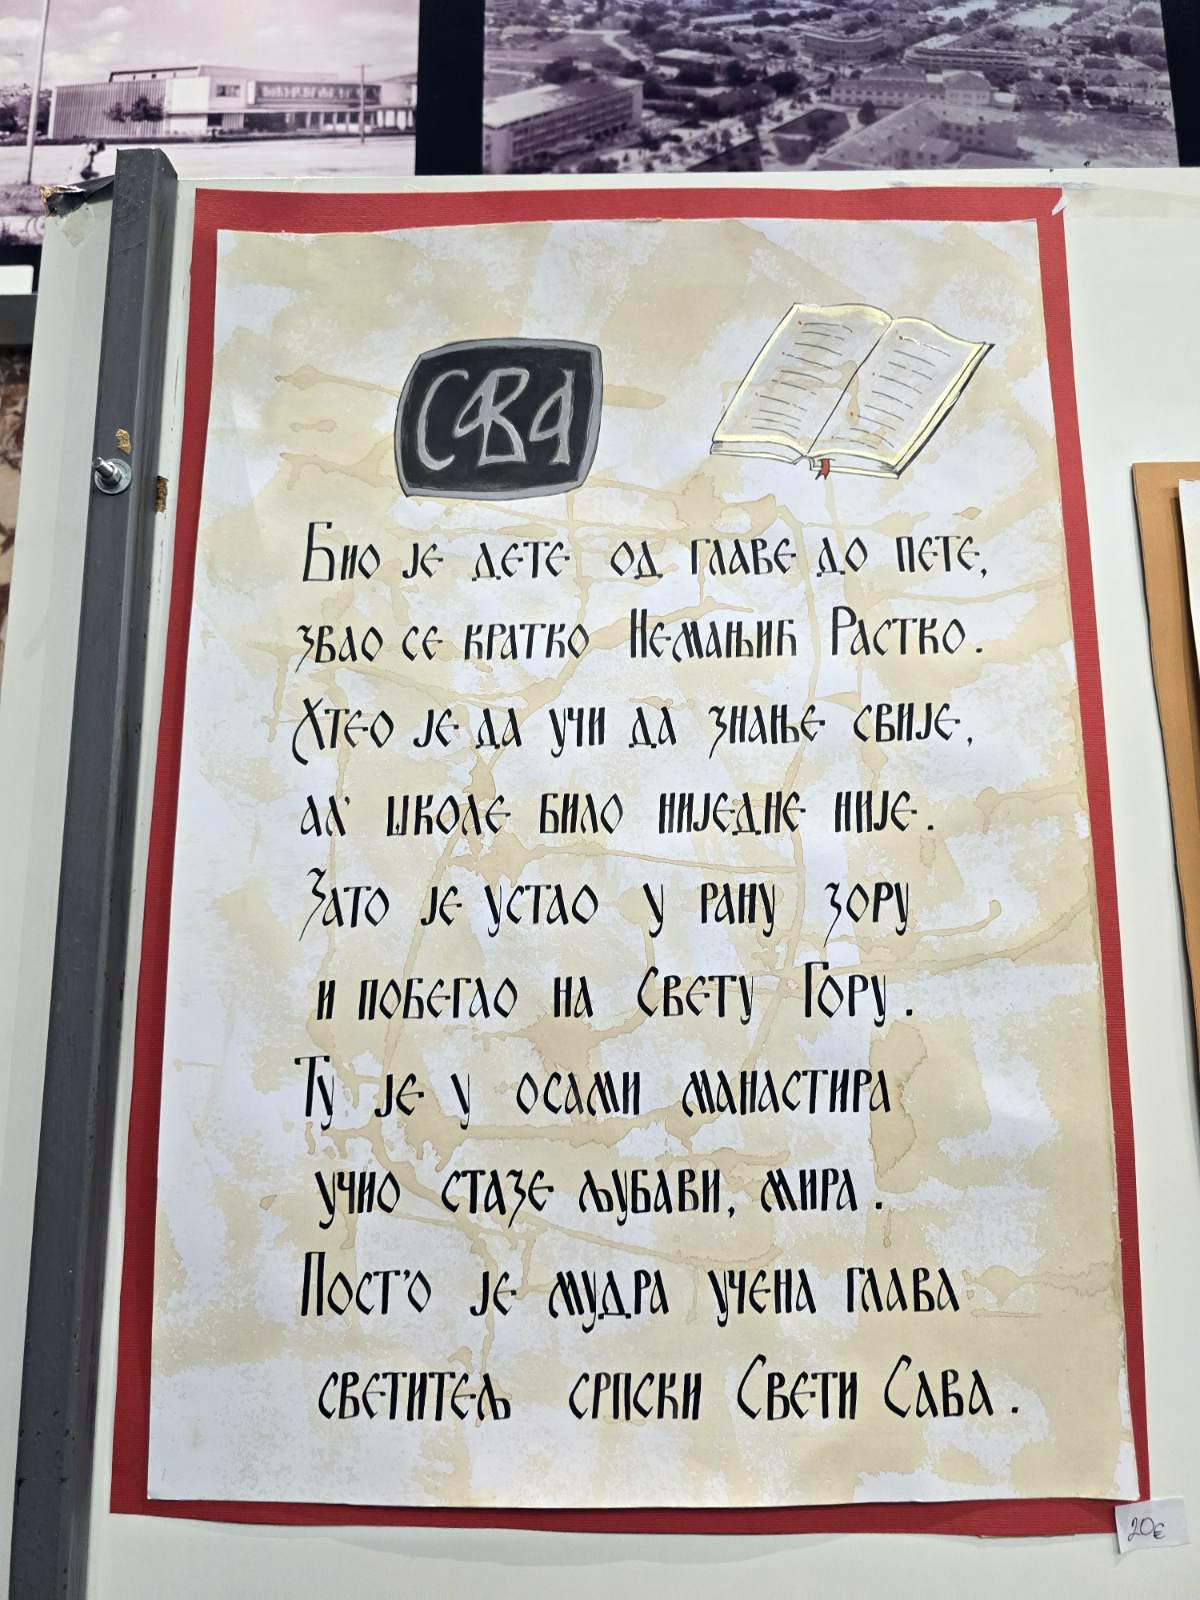 САВА
Био је дете од главе до пете,
звао се кратко Немањић Растко.
Хтео је да учи да знање свије,
ал' школе било ниједне није.
Зато је устао у рану зору
и побегао на Свету Гору.
Ту је у осами манастира
учио стазе љубави, мира.
Пост'о је мудра учена глава
светитељ српски Свети Сава.
20€